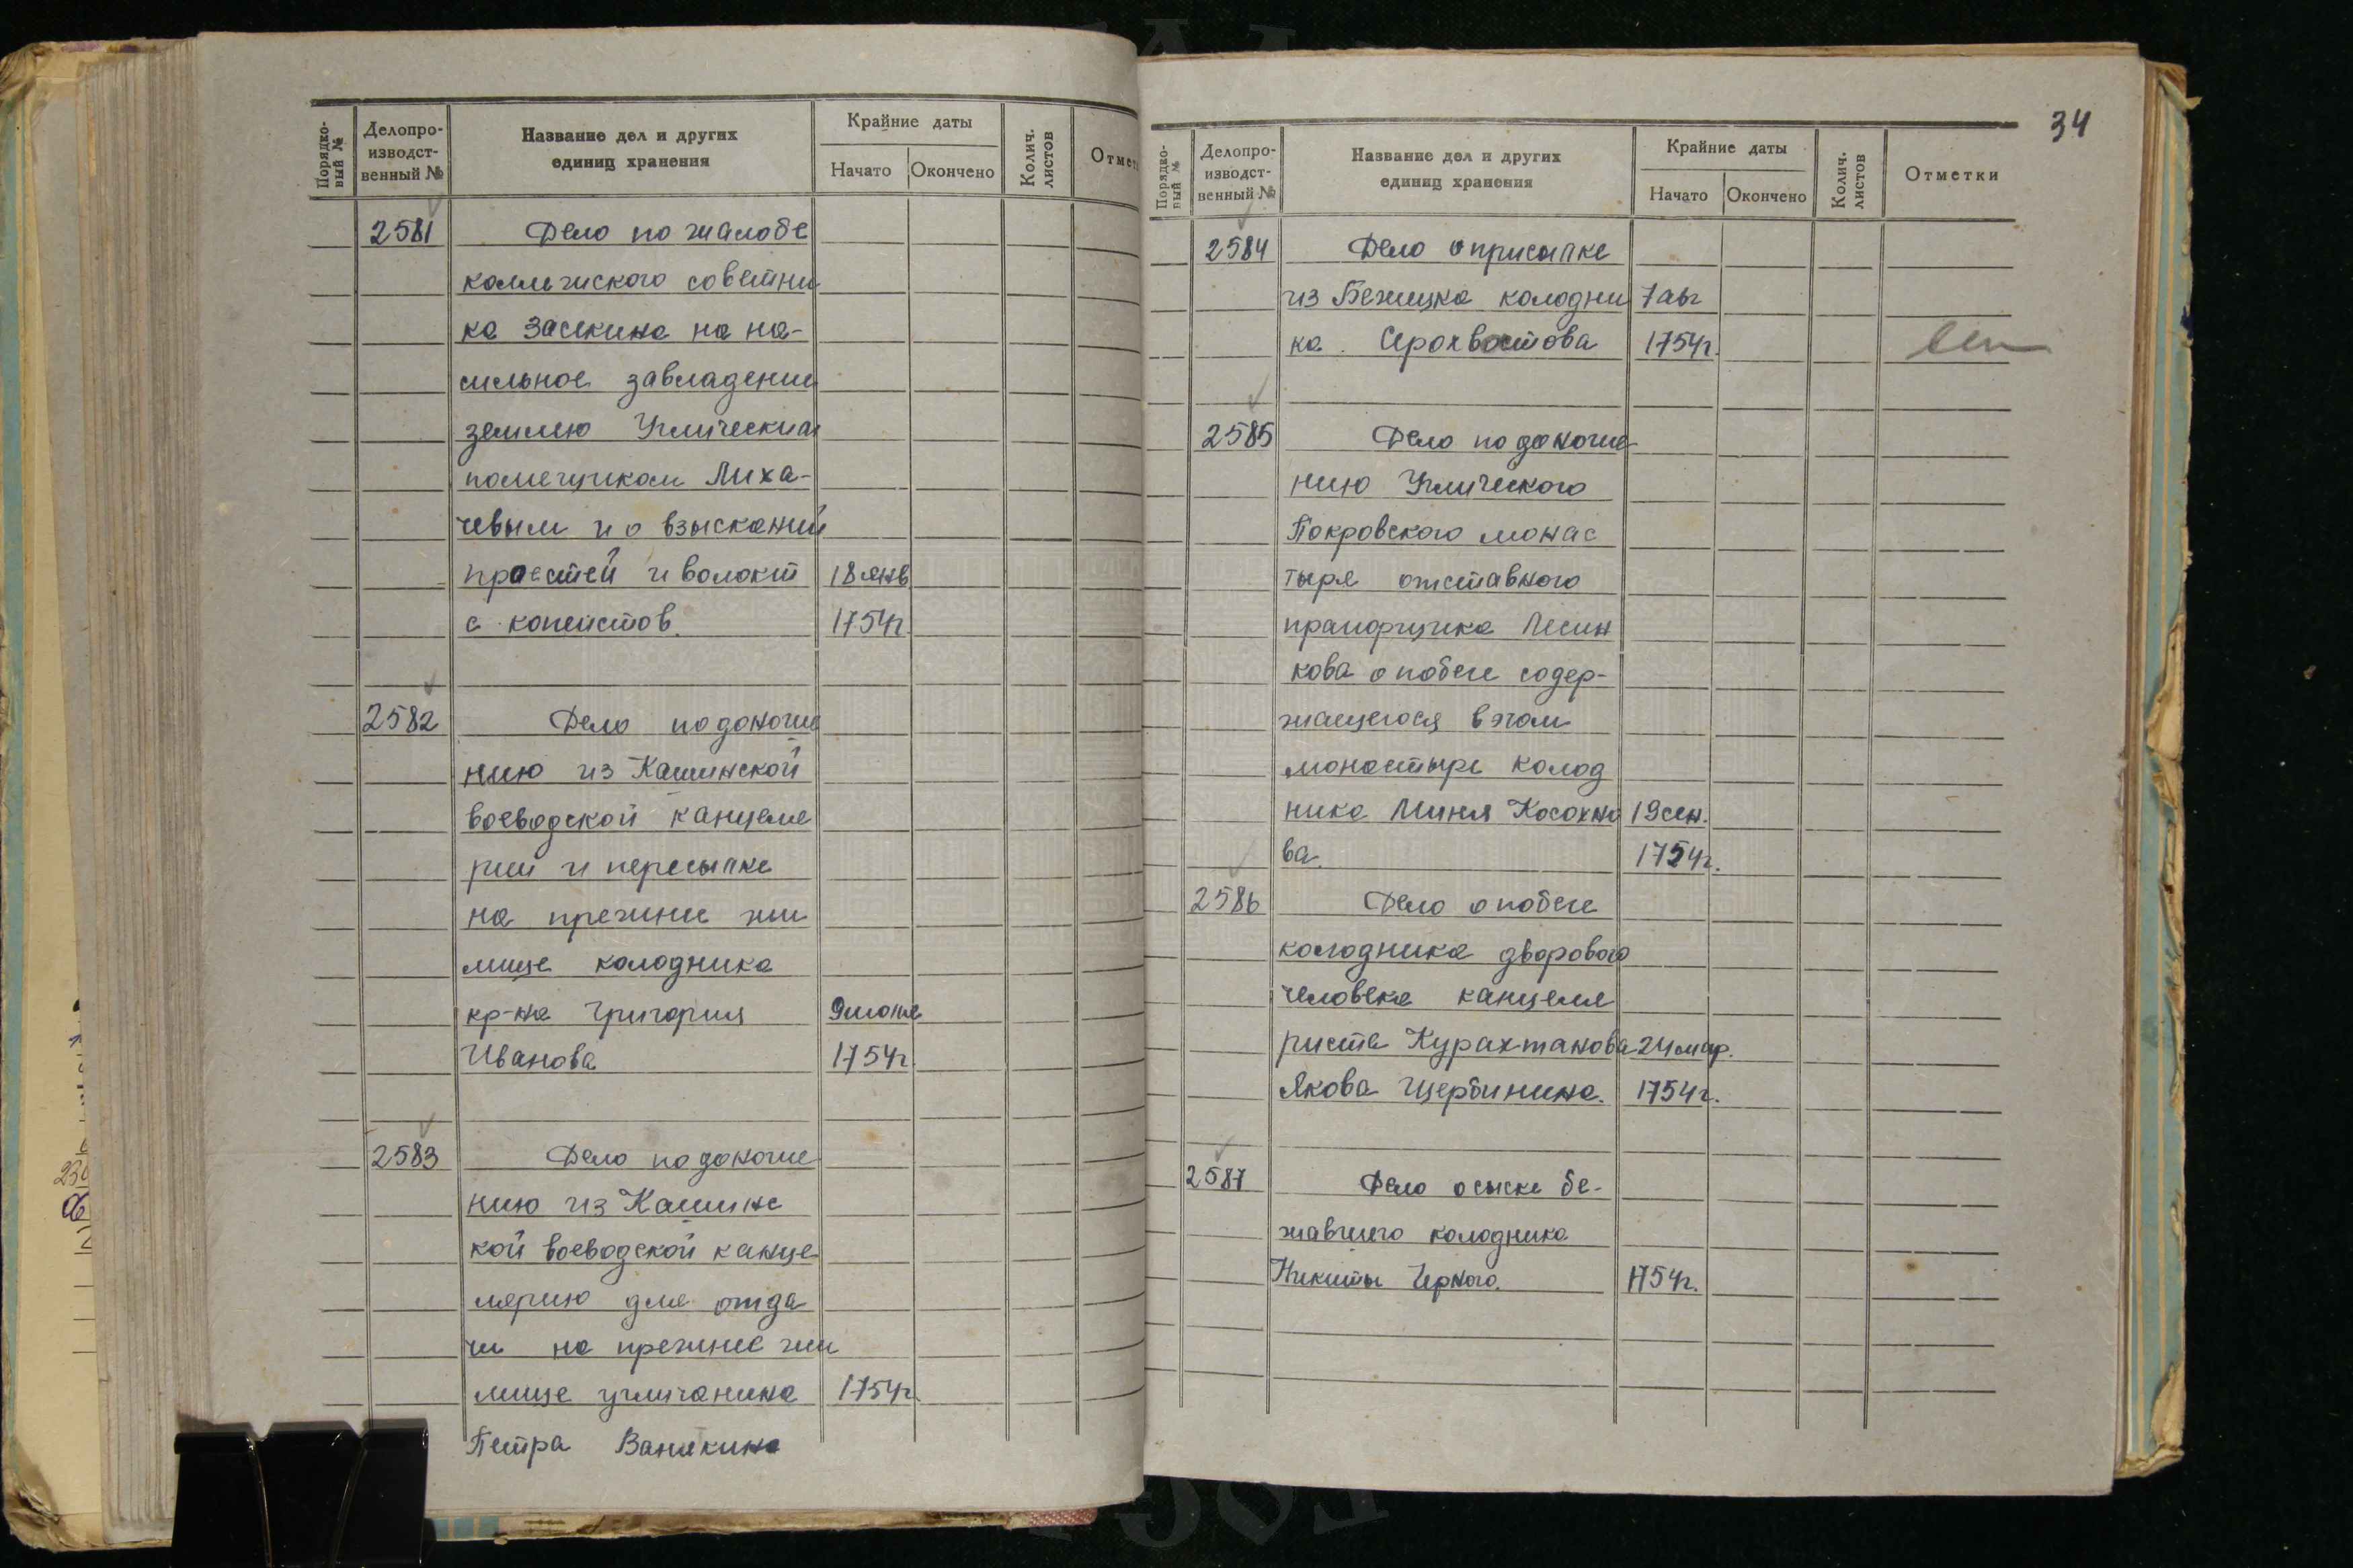 Порядко-
вый №
Делопро-
изводст-
венный №
Название дел и других
единиц хранения
Крайние даты
Начато
Окончено
Колич.
листов
Отмет
2581
Дело по жалобе
коллежского советни
ка Засекина на на-
сильное завладение
землею Угличским
помещиком Лиха-
чевым и о взыскании
проестей и волокит
с копеистов.
18 янв
1754г
2582
Дело по доноше
нию из Кашинской
воеводской канцеля
рии и пересылке
на прежнее жи
лище колодника
кр-на Григория
Иванова
9 июня
1754г
2583
Дело по доноше
нию из Кашинс
кой воеводской канце
лярию для отда
чи на прежнее жи
лище угличанина
1754г
Петра Ванюкина
34
Порядко-
вый №
Делопро-
изводст-
венный №
Название дел и других
единиц хранения
Крайние даты
Начато
Окончено
Колич.
листов
Отметки
2584
Дело о присылке
из Бежецка колодни 7 авг
ка Серохвостова 1754г.
2585
Дело по доноше
нию Угличского
Покровского монас
тыря отставного
прапорщика Лесин
кова о побеге содер-
жащегося в этом
монастыре колод
ника Миня Косохно 19 сен.
ва. 1754г.
2586
Дело о побеге
колодника дворового
человека канцеля
риста Курахтанова 24 мар.
Якова Щербинина. 1754г.
2587
Дело о сыске бе-
жавшего колодника
Никиты Черного. 1754г.